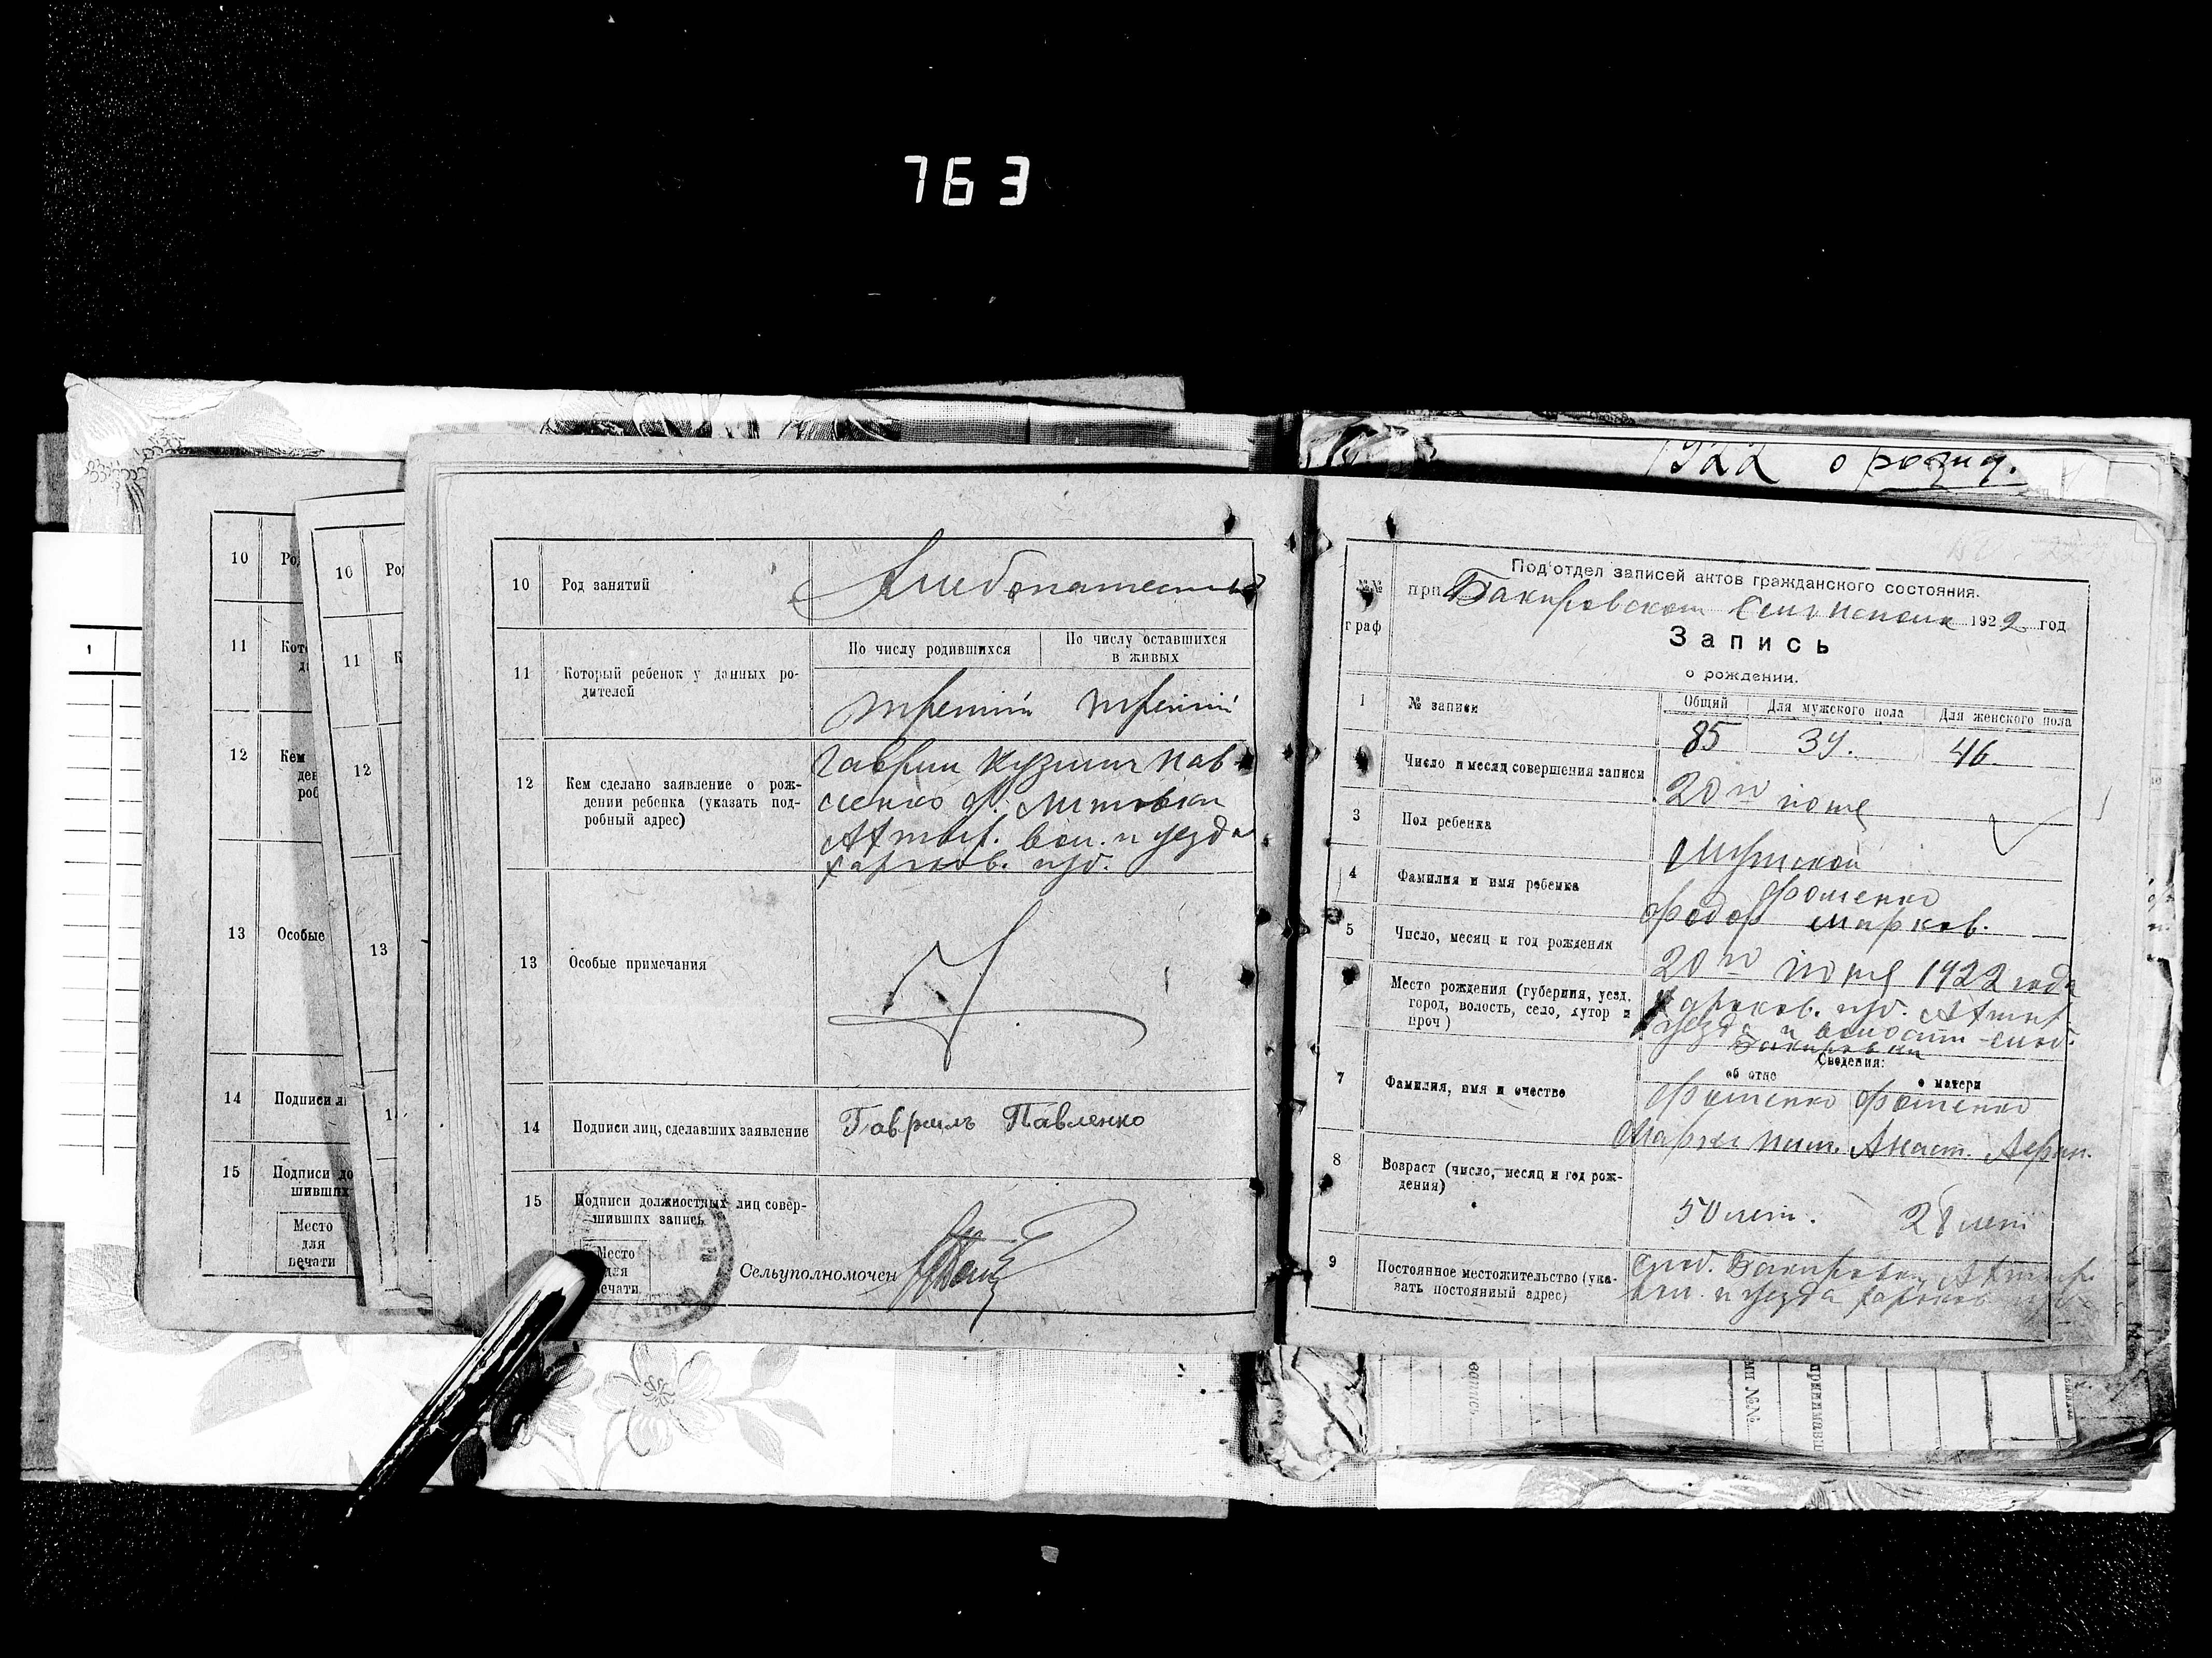 763
1922 о рожд.
10 Род занятий Хлебопашество
11 Который ребенок у данных ро-
дителей
По числу родившихся
По числу оставшихся
в живых
третий третий
12 Кем сделано заявление о рож-
дении ребенка (указать под-
робный адрес)
Гаврил Кузмич Пав-
ленко
Ахтыр. вол. и уезда
Харьков. губ.
13 Особые примечания
14 Подписи лиц, сделавших заявление Гаврилъ Павленко
15 Подписи должностных лиц совер-
шивших запись
Место
для
печати
Сельуполномочен
10
11
12
13 Особые
14
15
Место
для
печати
10
11
12
13
№№
граф
Под'отдел записей актов гражданского состояния.
при Бакировском 1922 год
Запись
о рождении.
1 № записи
Общий Для мужского пола Для женского пола
85 39. 46
Число и месяц совершения записи
20го июня
3 Пол ребенка
Мужской
4 Фамилия и имя ребенка
Фоменко
Федор Марков.
5 Число, месяц и год рождения
20го июня 1922 года
Место рождения (губерния, уезд.
город, волость, село, хутор и
проч)
Харьков. губ. Ахтыр
уезда и волости слоб.
Бакировки
Сведения:
об отце о матери
7 Фамилия, имя и очество
Фоменко Фоменко
Марк Анаст.
8 Возраст (число, месяц и год рож-
дения)
50 лет. 28 лет
9 Постоянное местожительство (ука-
зать постоянный адрес)
слоб. Бакировка Ахтыр.
вол. и уезда Харьков губ.